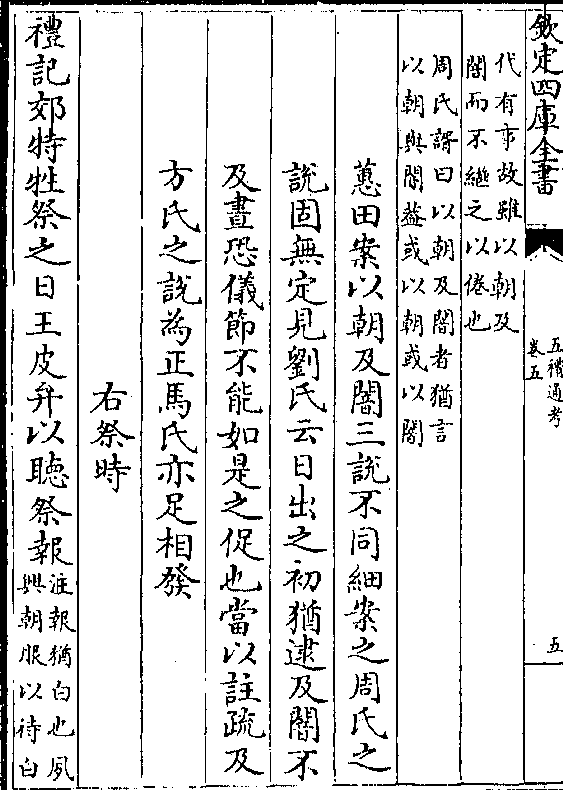 欽定四庫全書
五禮通考
卷五
五
代有事故雖以朝及
闇而不繼之以倦也
周氏諝曰以朝及闇者猶言
以朝與闇蓋或以朝或以闇
蕙田案以朝及闇三說不同細案之周氏之
說固無定見劉氏云日出之初猶逮及闇不
及晝恐儀節不能如是之促也當以註疏及
方氏之說為正馬氏亦足相發
右祭時
禮記郊特牲祭之日王皮弁以聽祭報
注報猶白也夙
興朝服以待白